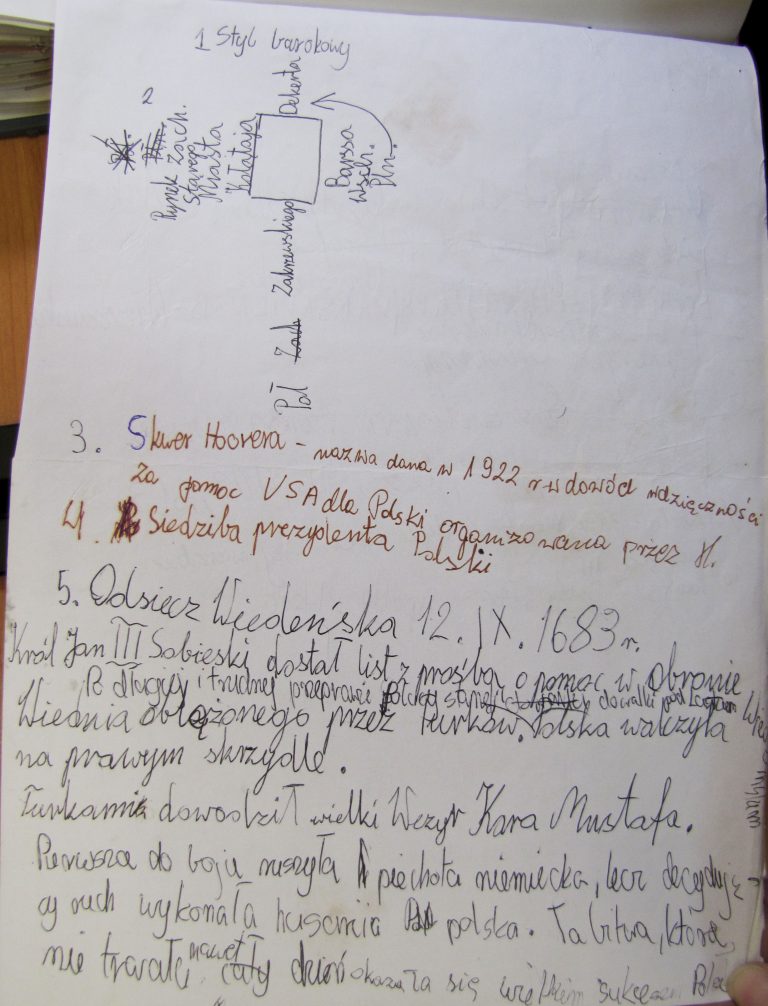 1 Styl barokowy
2
Rynek Zach.
Starego
Miasta
Kołątaja
Dekerta
Barssa
Wsch.
Płn.
Zakrzewskiego
Poł
3. Skwer Hoovera - nazwa dana w 1922 r w dowód wdzięczności
za pomoc USA dla Polski organizowana przez H.
4. Siedziba prezydenta Polski
5. Odsiecz Wiedeńska 12. IX. 1683 r.
Król Jan III Sobieski dostał list z prośbą o pomoc w obronie
Po długiej i trudnej przeprawie Polacy do walki pod
Wiednia oblężonego przez Turków. Polska walczyła
na prawym skrzydle.
Turkami dowodził wielki Wezyr Kara Mustafa.
Pierwsza do boju ruszyła piechota niemiecka, lecz decydują-
cy ruch wykonała husaria polska. Ta bitwa, która
nie trwała nawet cały dzień okazała się wielkim sukcesem